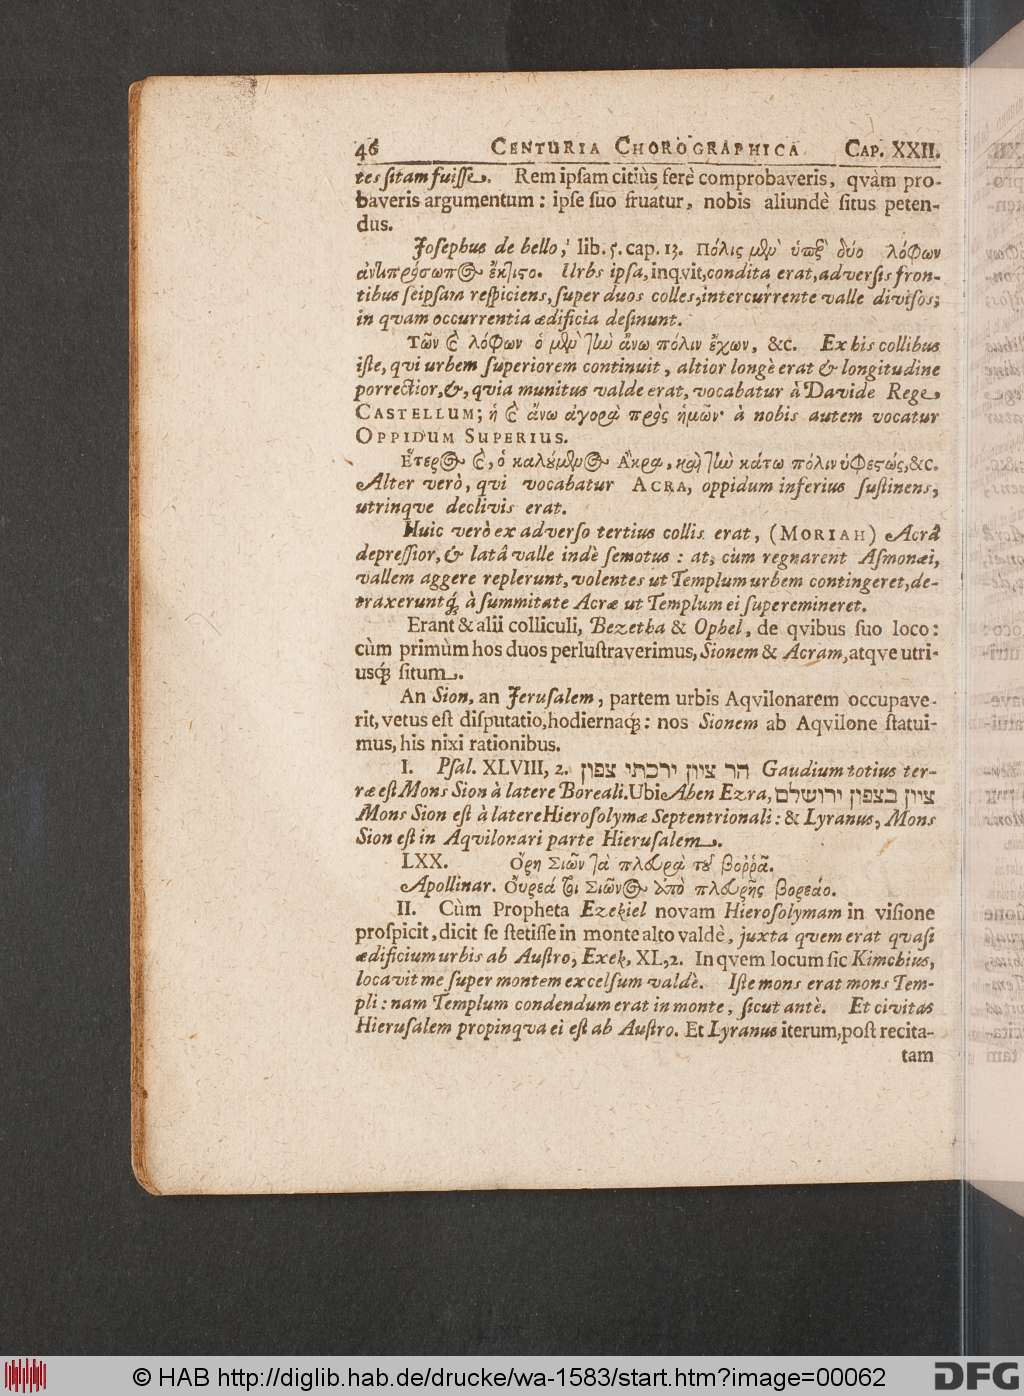 46 CENTURIA CHOROGRAPHICA CAP. XXII.
tes sitam fuisse. Rem ipsam citiùs ferè comprobaveris, qvàm pro-
baveris argumentum : ipse suo fruatur, nobis aliundè situs peten-
dus.
Josephus de bello, lib. 5. cap. 13. Πόλις μὲν ὑπὲρ δύο λόφων
ἀντιπρόσωπος ἔκτιστο. Urbs ipsa, inqvit, condita erat, adversis fron-
tibus seipsam respiciens, super duos colles, intercurrente valle divisos;
in qvam occurrentia ædificia desinunt.
Τῶν δὲ λόφων ὁ μὲν τὴν ἄνω πόλιν ἔχων, &c. Ex his collibus
iste, qvi urbem superiorem continuit, altior longè erat & longitudine
porrectior, &, qvia munitus valde erat, vocabatur à Davide Rege
CASTELLUM; ἡ δὲ ἄνω ἀγορὰ πρὸς ἡμῶν· à nobis autem vocatur
OPPIDUM SUPERIUS.
Ἕτερος δὲ, ὁ καλούμενος Ἄκρα, καὶ τὴν κάτω πόλιν ὑφεστώς, &c.
Alter verò, qvi vocabatur ACRA, oppidum inferius sustinens,
utrinqve declivis erat.
Huic verò ex adverso tertius collis erat, (MORIAH) Acrâ
depressior, & latâ valle indè semotus : at, cùm regnarent Asmonæi,
vallem aggere replerunt, volentes ut Templum urbem contingeret, de-
traxeruntq; à summitate Acræ ut Templum ei superemineret.
Erant & alii colliculi, Bezetha & Ophel, de qvibus suo loco :
cùm primùm hos duos perlustraverimus, Sionem & Acram, atqve utri-
usq; situm.
An Sion, an Jerusalem, partem urbis Aqvilonarem occupave-
rit, vetus est disputatio, hodiernaq; : nos Sionem ab Aqvilone statui-
mus, his nixi rationibus.
I. Psal. XLVIII, 2. הר ציון ירכתי צפון Gaudium totius ter-
ræ est Mons Sion à latere Boreali. Ubi Aben Ezra, ציון בצפון ירושלם
Mons Sion est à latere Hierosolymæ Septentrionali : & Lyranus, Mons
Sion est in Aqvilonari parte Hierusalem.
LXX. Ὄρη Σιῶν τὰ πλευρὰ τοῦ βοῤῥᾶ.
Apollinar. Οὔρεά τοι Σιῶνος ἀπὸ πλευρῆς βορεάο.
II. Cùm Propheta Ezekiel novam Hierosolymam in visione
prospicit, dicit se stetisse in monte alto valdè, juxta qvem erat qvasi
ædificium urbis ab Austro, Exek, XL, 2. In qvem locum sic Kimchius,
locavit me super montem excelsum valdè. Iste mons erat mons Tem-
pli : nam Templum condendum erat in monte, sicut antè. Et civitas
Hierusalem propinqva ei est ab Austro. Et Lyranus iterum, post recita-
tam
© HAB http://diglib.hab.de/drucke/wa-1583/start.htm?image=00062
DFG